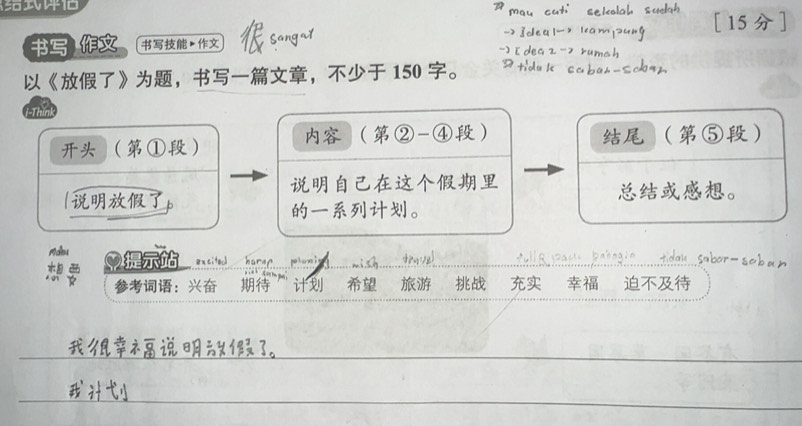 结式评估
mau cuti sekolah sudah
书写 作文 书写技能▸作文 很 sangat [15 分]
-> Idea 1 -> kampung
-> Idea 2 -> rumah
以《放假了》为题，书写一篇文章，不少于 150 字。
tidak sabar-sabar
i-Think
开头（第①段） 内容（第②-④段） 结尾（第⑤段）
说明放假了。
说明自己在这个假期里的一系列计划。
总结或感想。
mahu
想要
提示站
excited harap planning wish travel bahagia tidak sabar-sabar
参考词语：兴奋 期待 计划 希望 旅游 挑战 充实 幸福 迫不及待
我很幸福说明放假了。
我计划